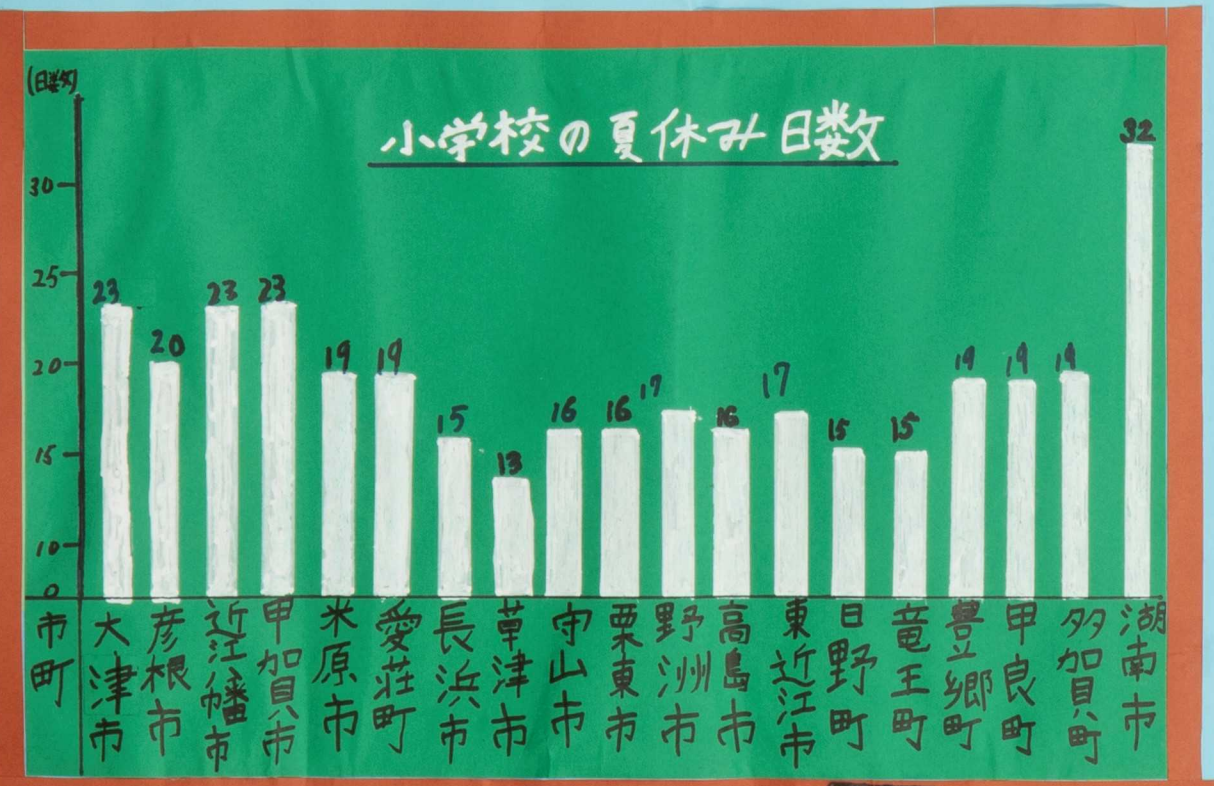 小学校の夏休み日数
(日数)
30
25
20
15
10
0
23
20
23
23
19
19
15
13
16
16
17
16
17
15
15
19
19
19
32
市町
大津市
彦根市
近江八幡市
甲加貝市
米原市
愛荘町
長浜市
草津市
守山市
栗東市
野洲市
高島市
東近江市
日野町
竜王町
豊郷町
甲良町
多加貝町
湖南市